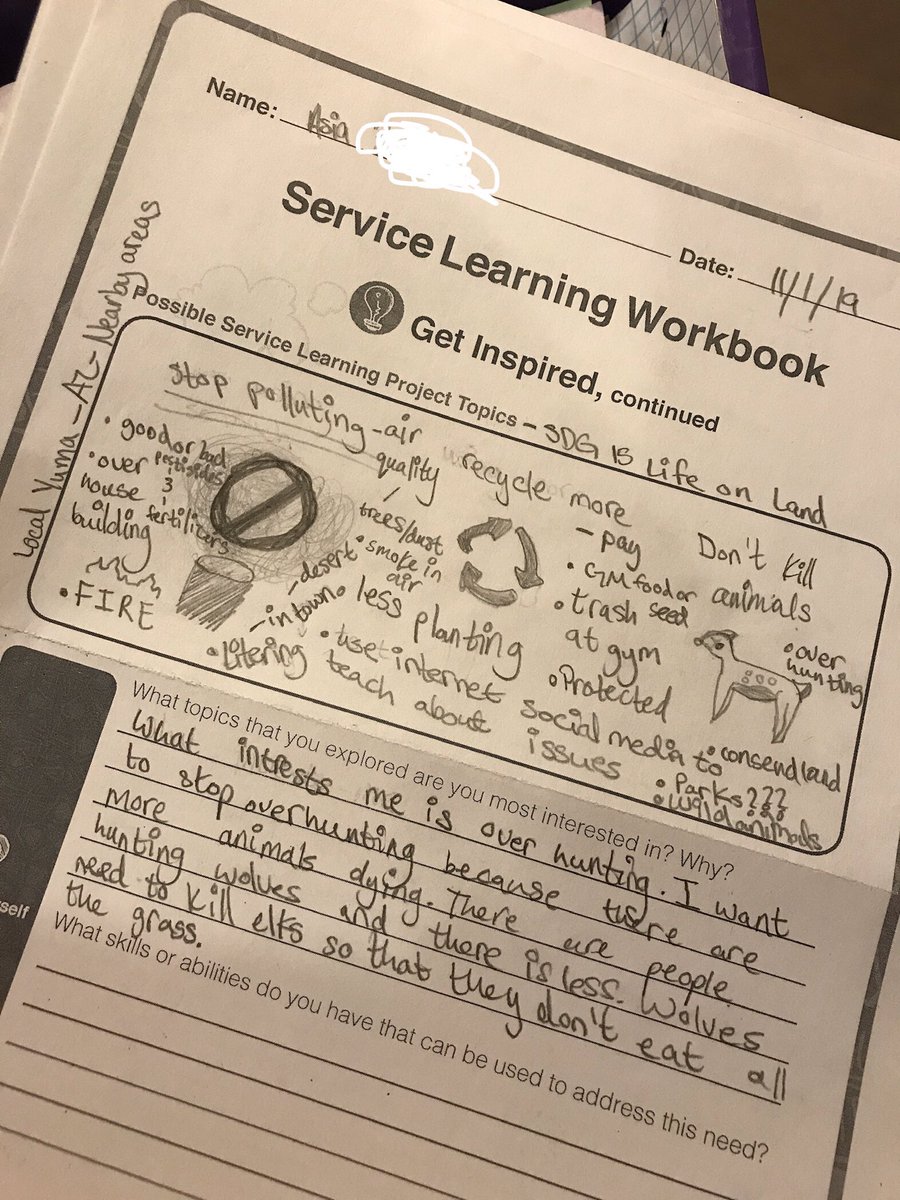 Name: Asia
Date: 11/1/19
Service Learning Workbook
Get Inspired, continued
Possible Service Learning Project Topics - SDG 15 Life on Land
Local Yuma - AZ - Nearby areas
Stop polluting - air
quality
trees/dust
• smoke in
air
• good or bad
pestisides
3
fertilizers
• over
house
building
• FIRE
recycle more
- pay
• GM food or
seed
• trash
at gym
• Protected
Don't kill
animals
• over
hunting
- desert
- in town
• Litering
• less planting
• use internet social media to
teach about issues
• consend land
• Parks???
• Wild animals
What topics that you explored are you most interested in? Why?
What intrests me is over hunting. I want
to stop overhunting because there are
more animals dying. There are people
hunting wolves and there is less. Wolves
need to kill elfs so that they don't eat all
the grass.
What skills or abilities do you have that can be used to address this need?
self